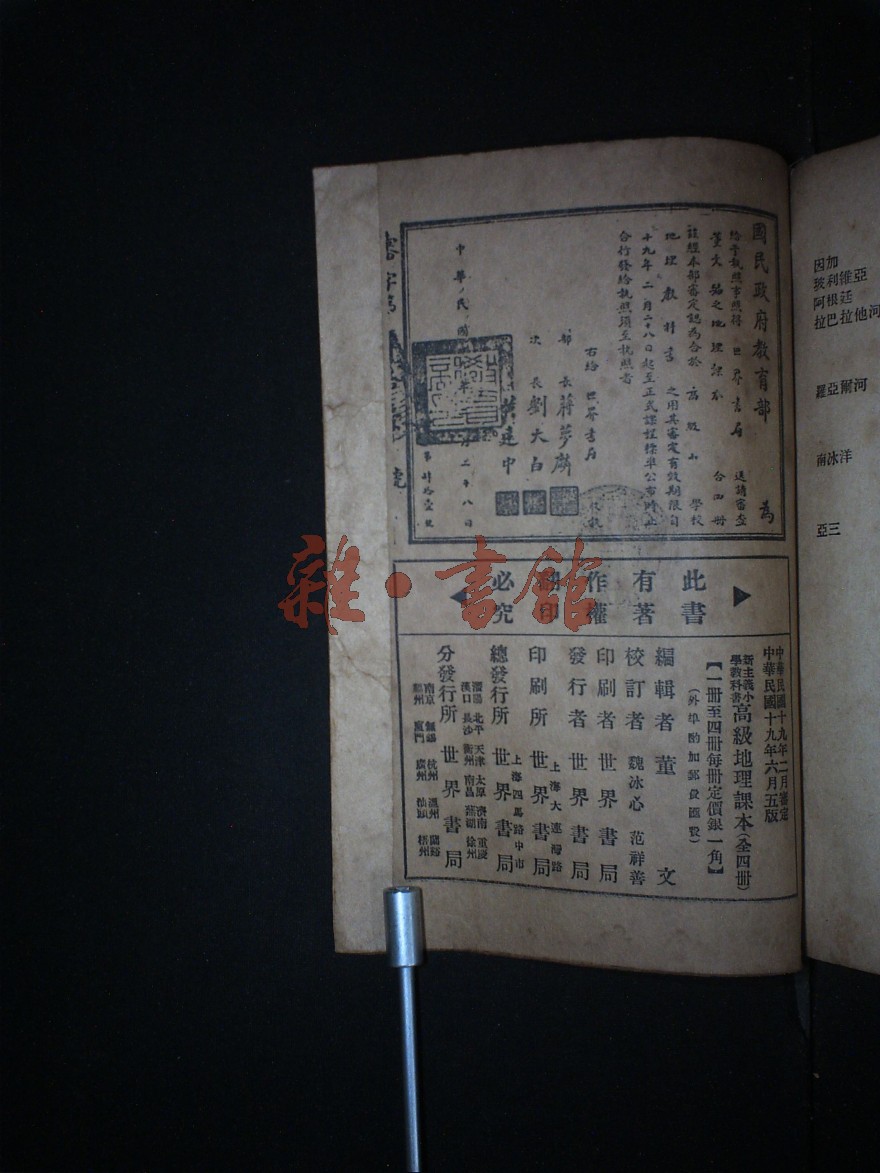 國民政府教育部 為
給予執照事照得 世界書局 送請審查
董文編之地理課本 合四冊
該經本部審定認為合於 高級小 學校
地理教科書 之用其審定有效期限自
十九年二月二十八日起至正式課程標準公布時止
合行發給執照須至執照者
右給 世界書局 收執
部長蔣夢麟
次長劉大白
中華民國 年 月二十八日
此書
有著
作權
翻印
必究
中華民國十九年二月審定
中華民國十九年六月五版
新主義小學教科書高級地理課本(全四冊)
【一冊至四冊每冊定價銀一角】
(外埠酌加郵費匯費)
編輯者 董文
校訂者 魏冰心 范祥善
印刷者 世界書局
發行者 世界書局
印刷所 上海大連灣路 世界書局
總發行所 上海四馬路中市 世界書局
分發行所 世界書局
瀋陽 北平 天津 太原 濟南 重慶
漢口 長沙 衡州 南昌 蕪湖 徐州
南京 無錫 杭州 溫州 蘭谿
廈門 廣州 汕頭 梧州
因加
玻利維亞
阿根廷
拉巴拉他河
羅亞爾河
南冰洋
亞三
雜·書館